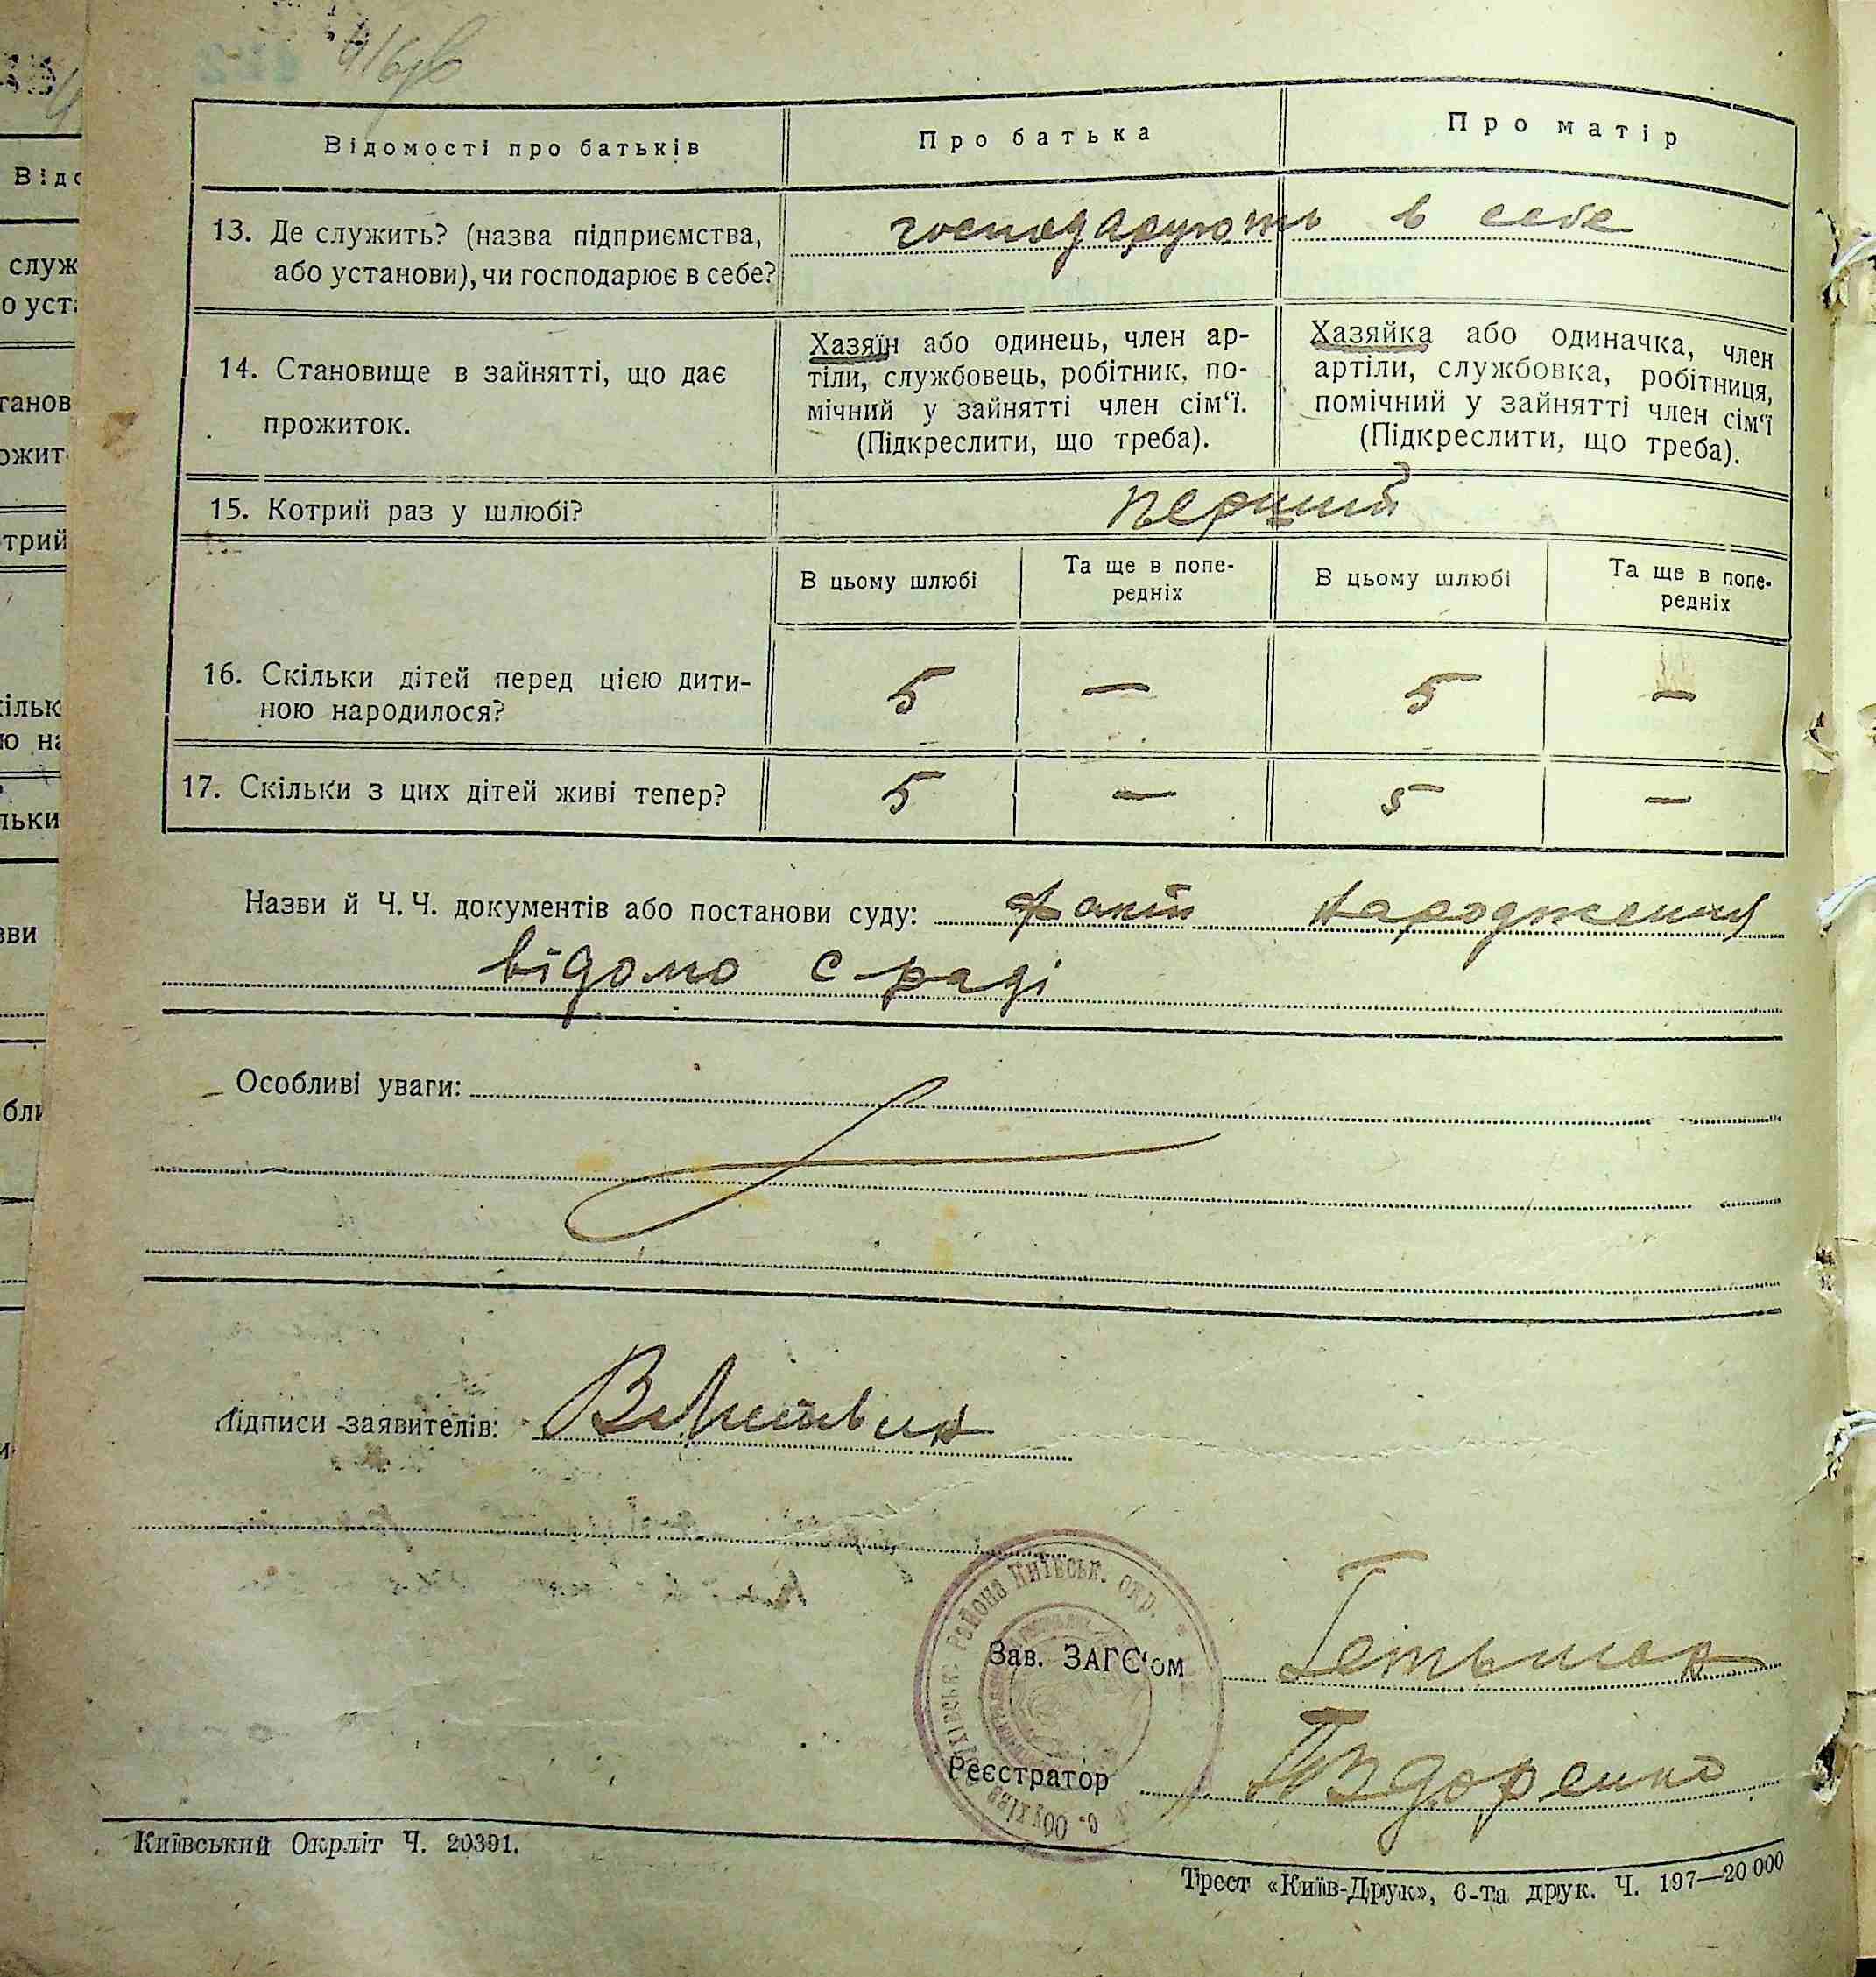 Відомості про батьків
Про батька
Про матір
13. Де служить? (назва підприємства,
або установи), чи господарює в себе?
господарують в себе
14. Становище в зайнятті, що дає
прожиток.
Хазяїн або одинець, член ар-
тіли, службовець, робітник, по-
мічний у зайнятті член сім‘ї.
(Підкреслити, що треба).
Хазяйка або одиначка, член
артіли, службовка, робітниця,
помічний у зайнятті член сім‘ї
(Підкреслити, що треба).
15. Котрий раз у шлюбі?
перший
В цьому шлюбі
Та ще в попе-
редніх
В цьому шлюбі
Та ще в попе-
редніх
16. Скільки дітей перед цією дити-
ною народилося?
5 — 5 —
17. Скільки з цих дітей живі тепер?
5 — 5 —
Назви й Ч. Ч. документів або постанови суду: факт народження
відомо с-раді
Особливі уваги:
Підписи заявителів: В Литвин
Районе Київськ. окр.
с. Обухів
Зав. ЗАГС‘ом Гетьман
Реєстратор
Київський Окрліт Ч. 20391.
Трест «Київ-Друк», 6-та друк. Ч. 197—20 000